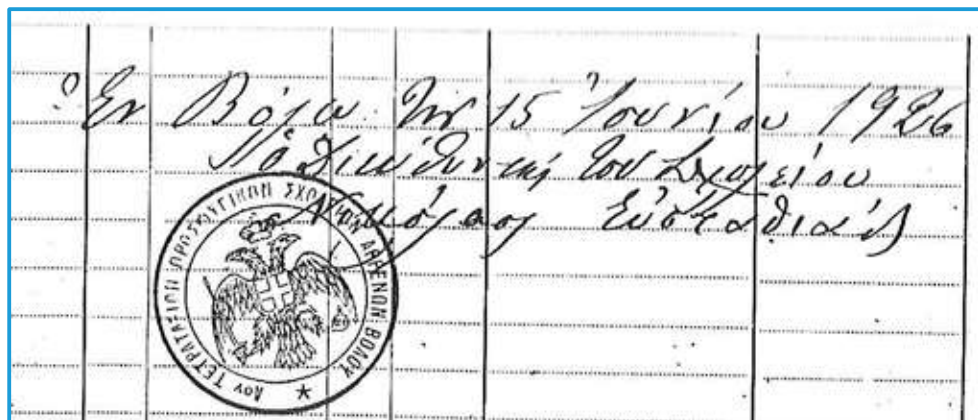 Ἐν Βόλῳ τῇ 15 Ἰουνίου 1926
Ὁ Διευθυντὴς τοῦ Σχολείου
Νικόλαος Εὐσταθιάδ
4ον ΤΕΤΡΑΤΑΞΙΟΝ ΠΡΟΣΦΥΓΙΚΟΝ ΣΧΟΛΕΙΟΝ ΑΡΡΕΝΩΝ ΒΟΛΟΥ